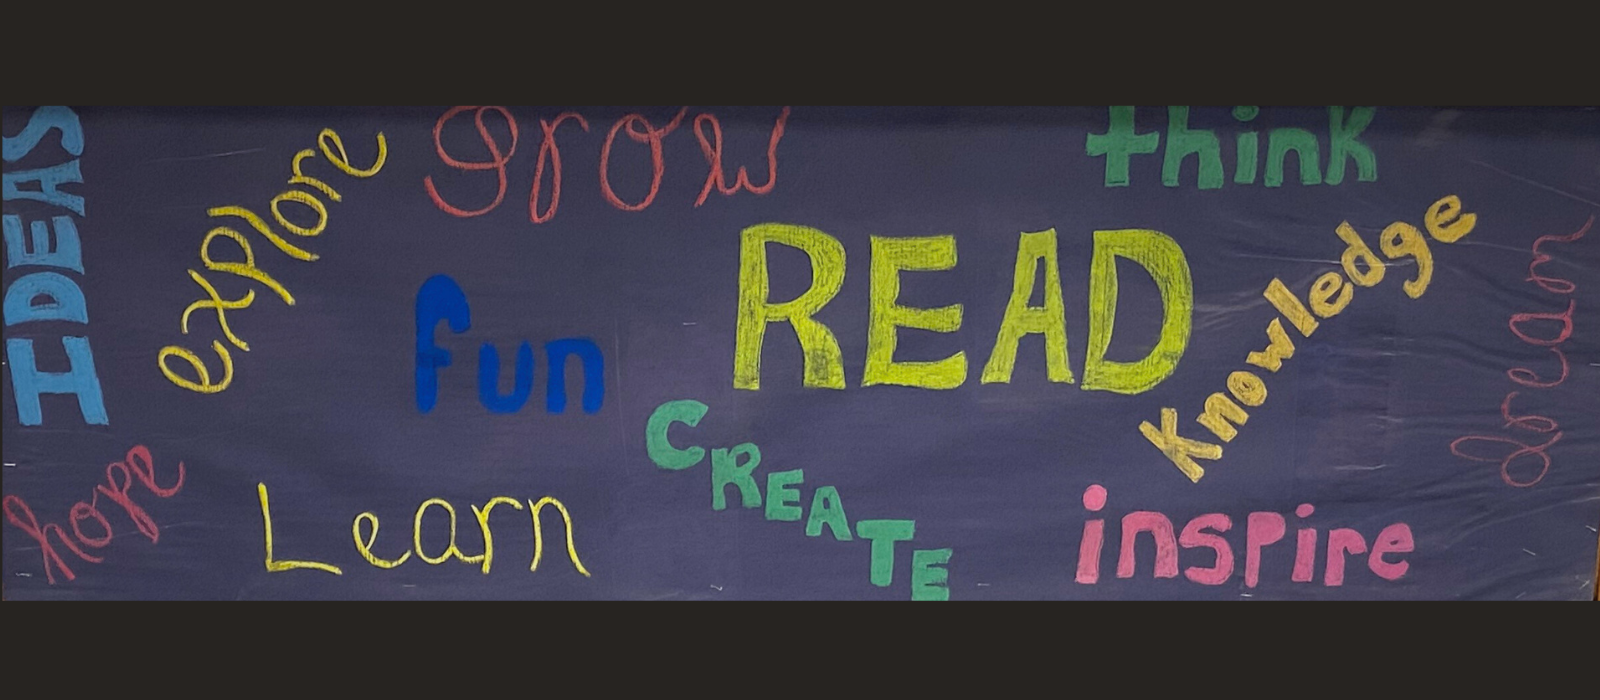 IDEAS
explore
Grow
think
fun
READ
Knowledge
dream
hope
Learn
CREATE
inspire